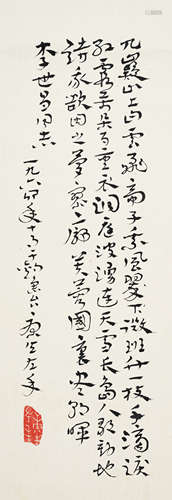 九嶷山上白雲飛帝子乘風翠下微斑竹一枝千滴淚
紅霞萬朵百重衣洞庭波湧連天雪長島人歌動地
詩我欲因之夢寥廓芙蓉國裏盡朝暉
李世昌同志 一九六四年十月